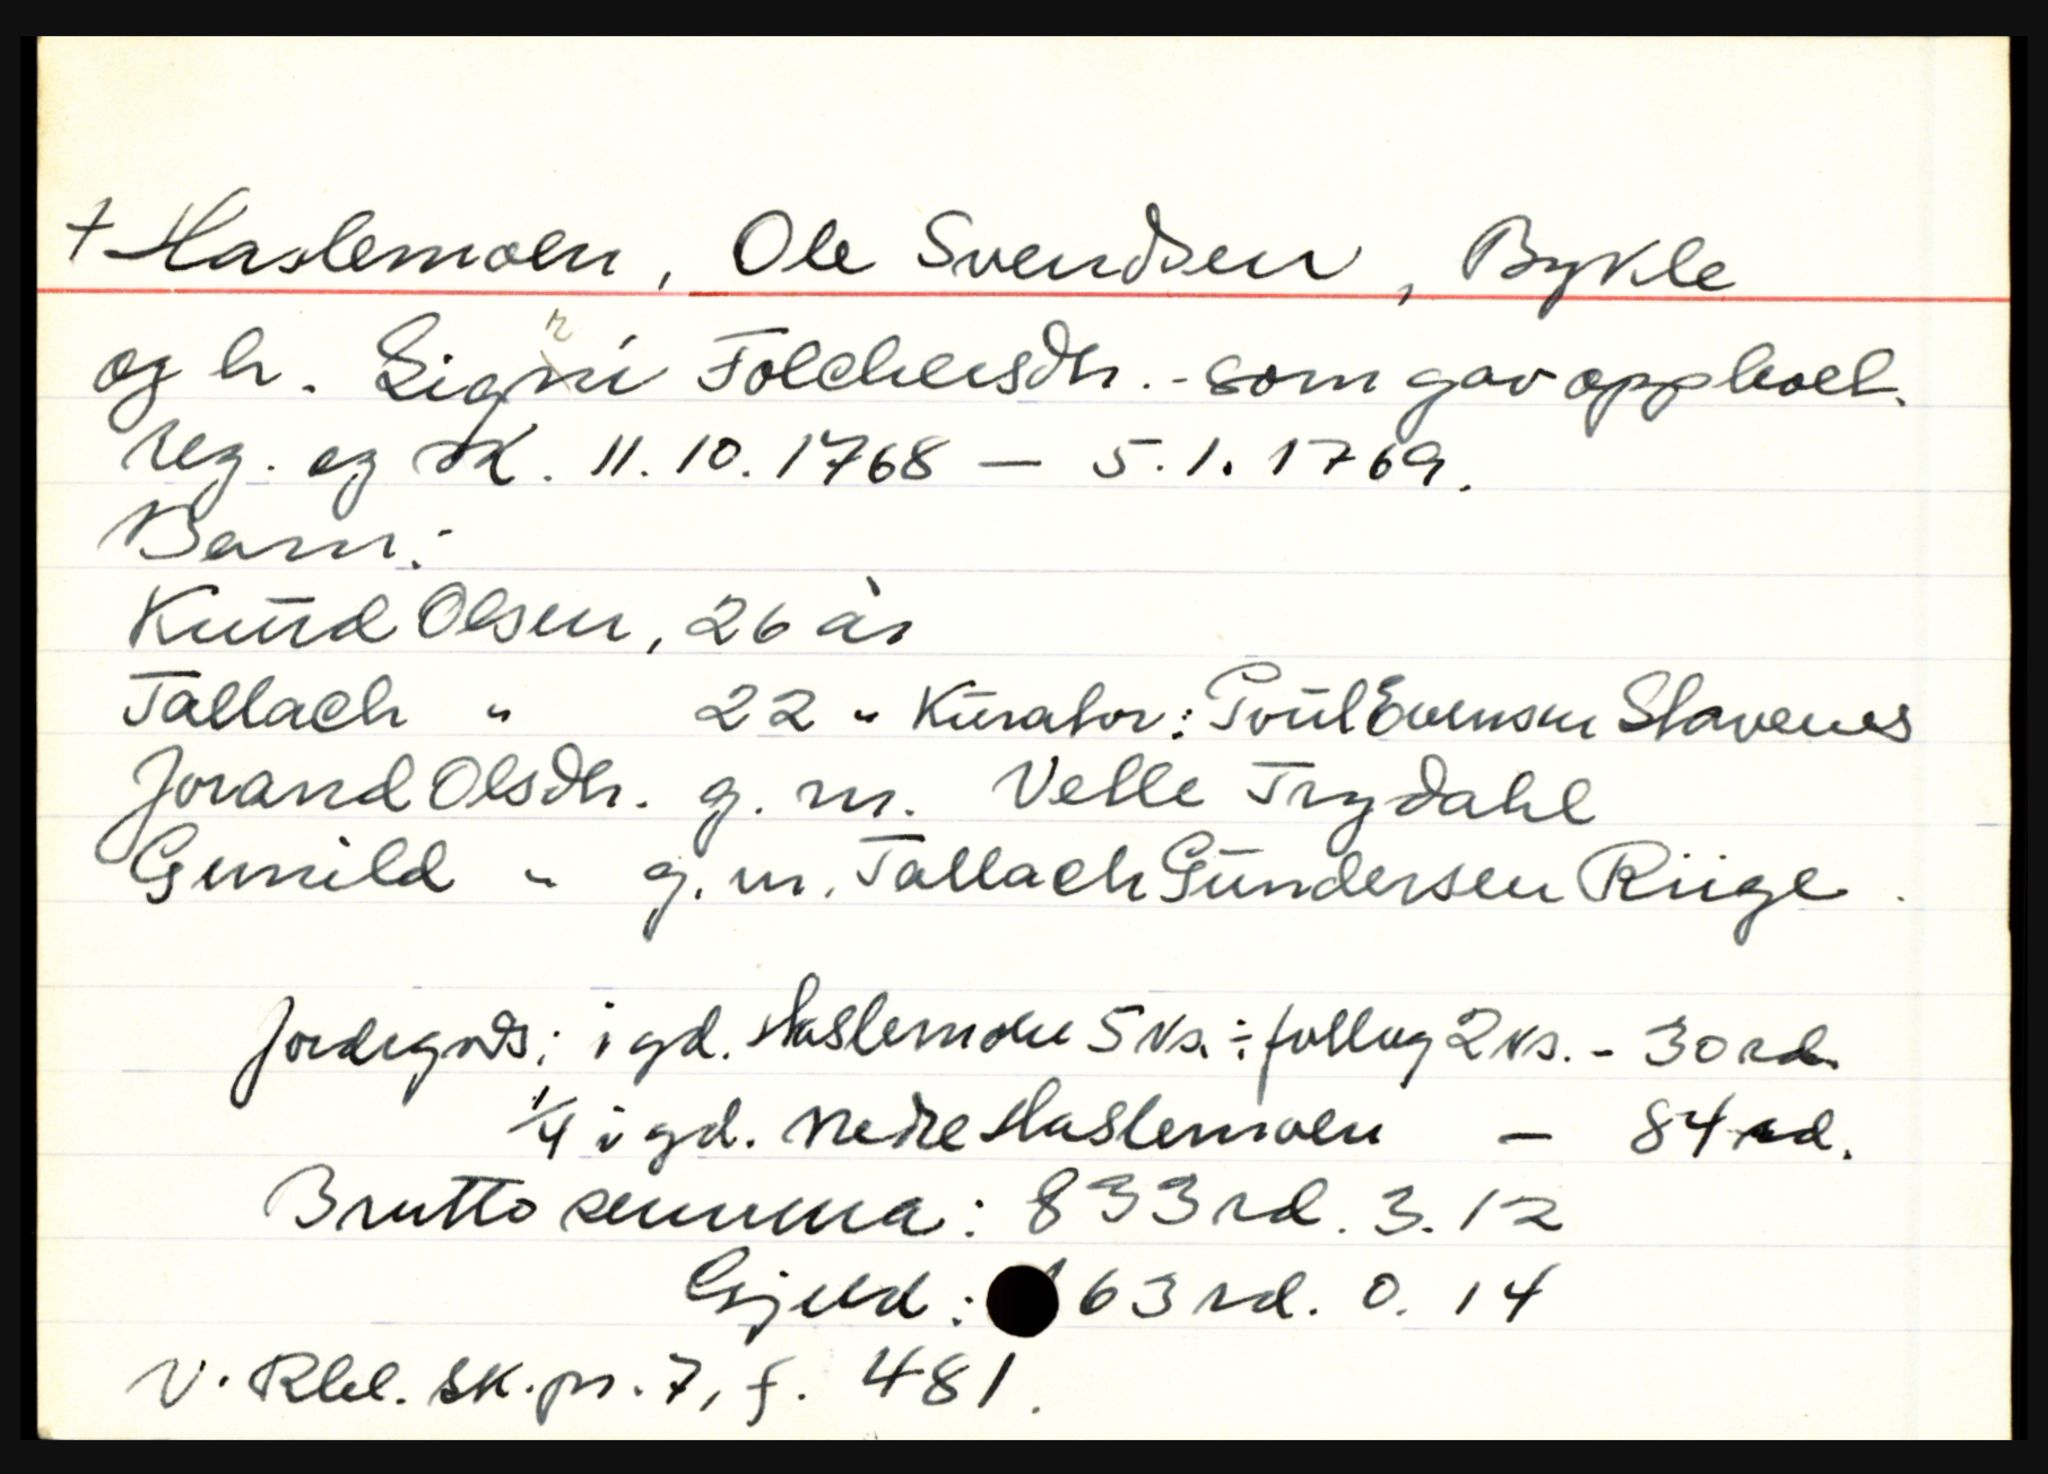 + Haslemoen, Ole Svendsen, Bykle
og h. Signi Folchersdtr. - som gav opp boet.
n
reg. og sk. 11.10.1768 — 5.1.1769.
Barn:
Knud Olsen, 26 år
Tallach " 22 " Kurator: Povl Evensen Stavenes
Jorand Olsdtr. g. m. Velle Trydahl
Gunild " g. m. Tallach Gundersen Riige.
Jordegods: i gd. Haslemoen 5 ks. ÷ follog 2 ks. - 30 rd.
1/4 i gd. Nedre Haslemoen — 84 rd.
Brutto summa: 833 rd. 3. 12
Gjeld: 63 rd. 0. 14
V. Rbl. sk. pr. 7, f. 481.